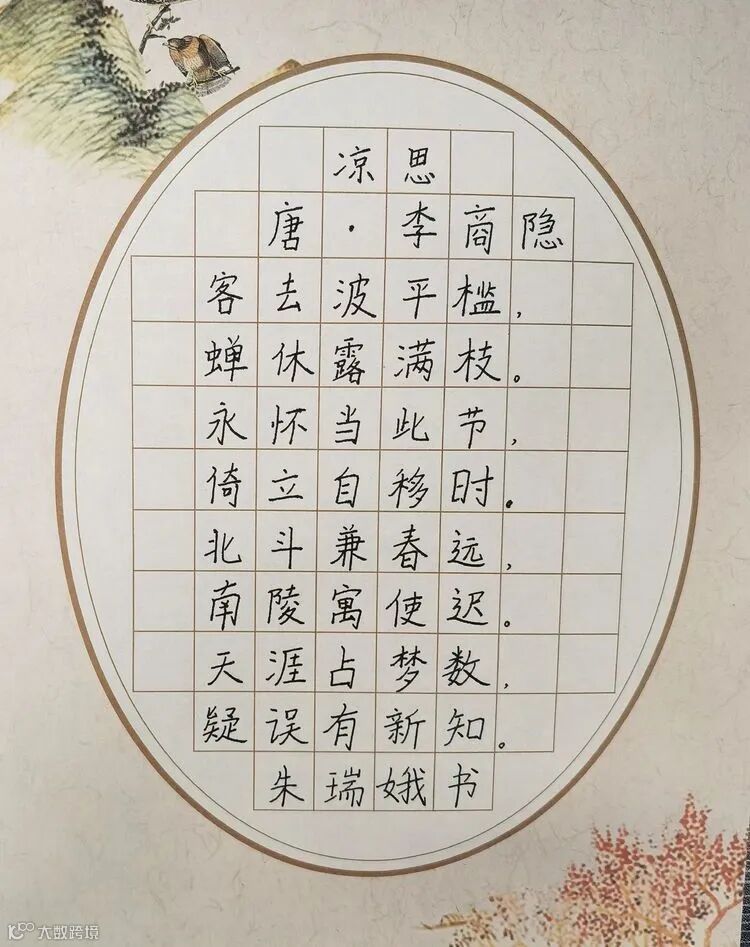 凉思
唐·李商隐
客去波平槛,
蝉休露满枝。
永怀当此节,
倚立自移时。
北斗兼春远,
南陵寓使迟。
天涯占梦数,
疑误有新知。
朱瑞娥书
大数跨境